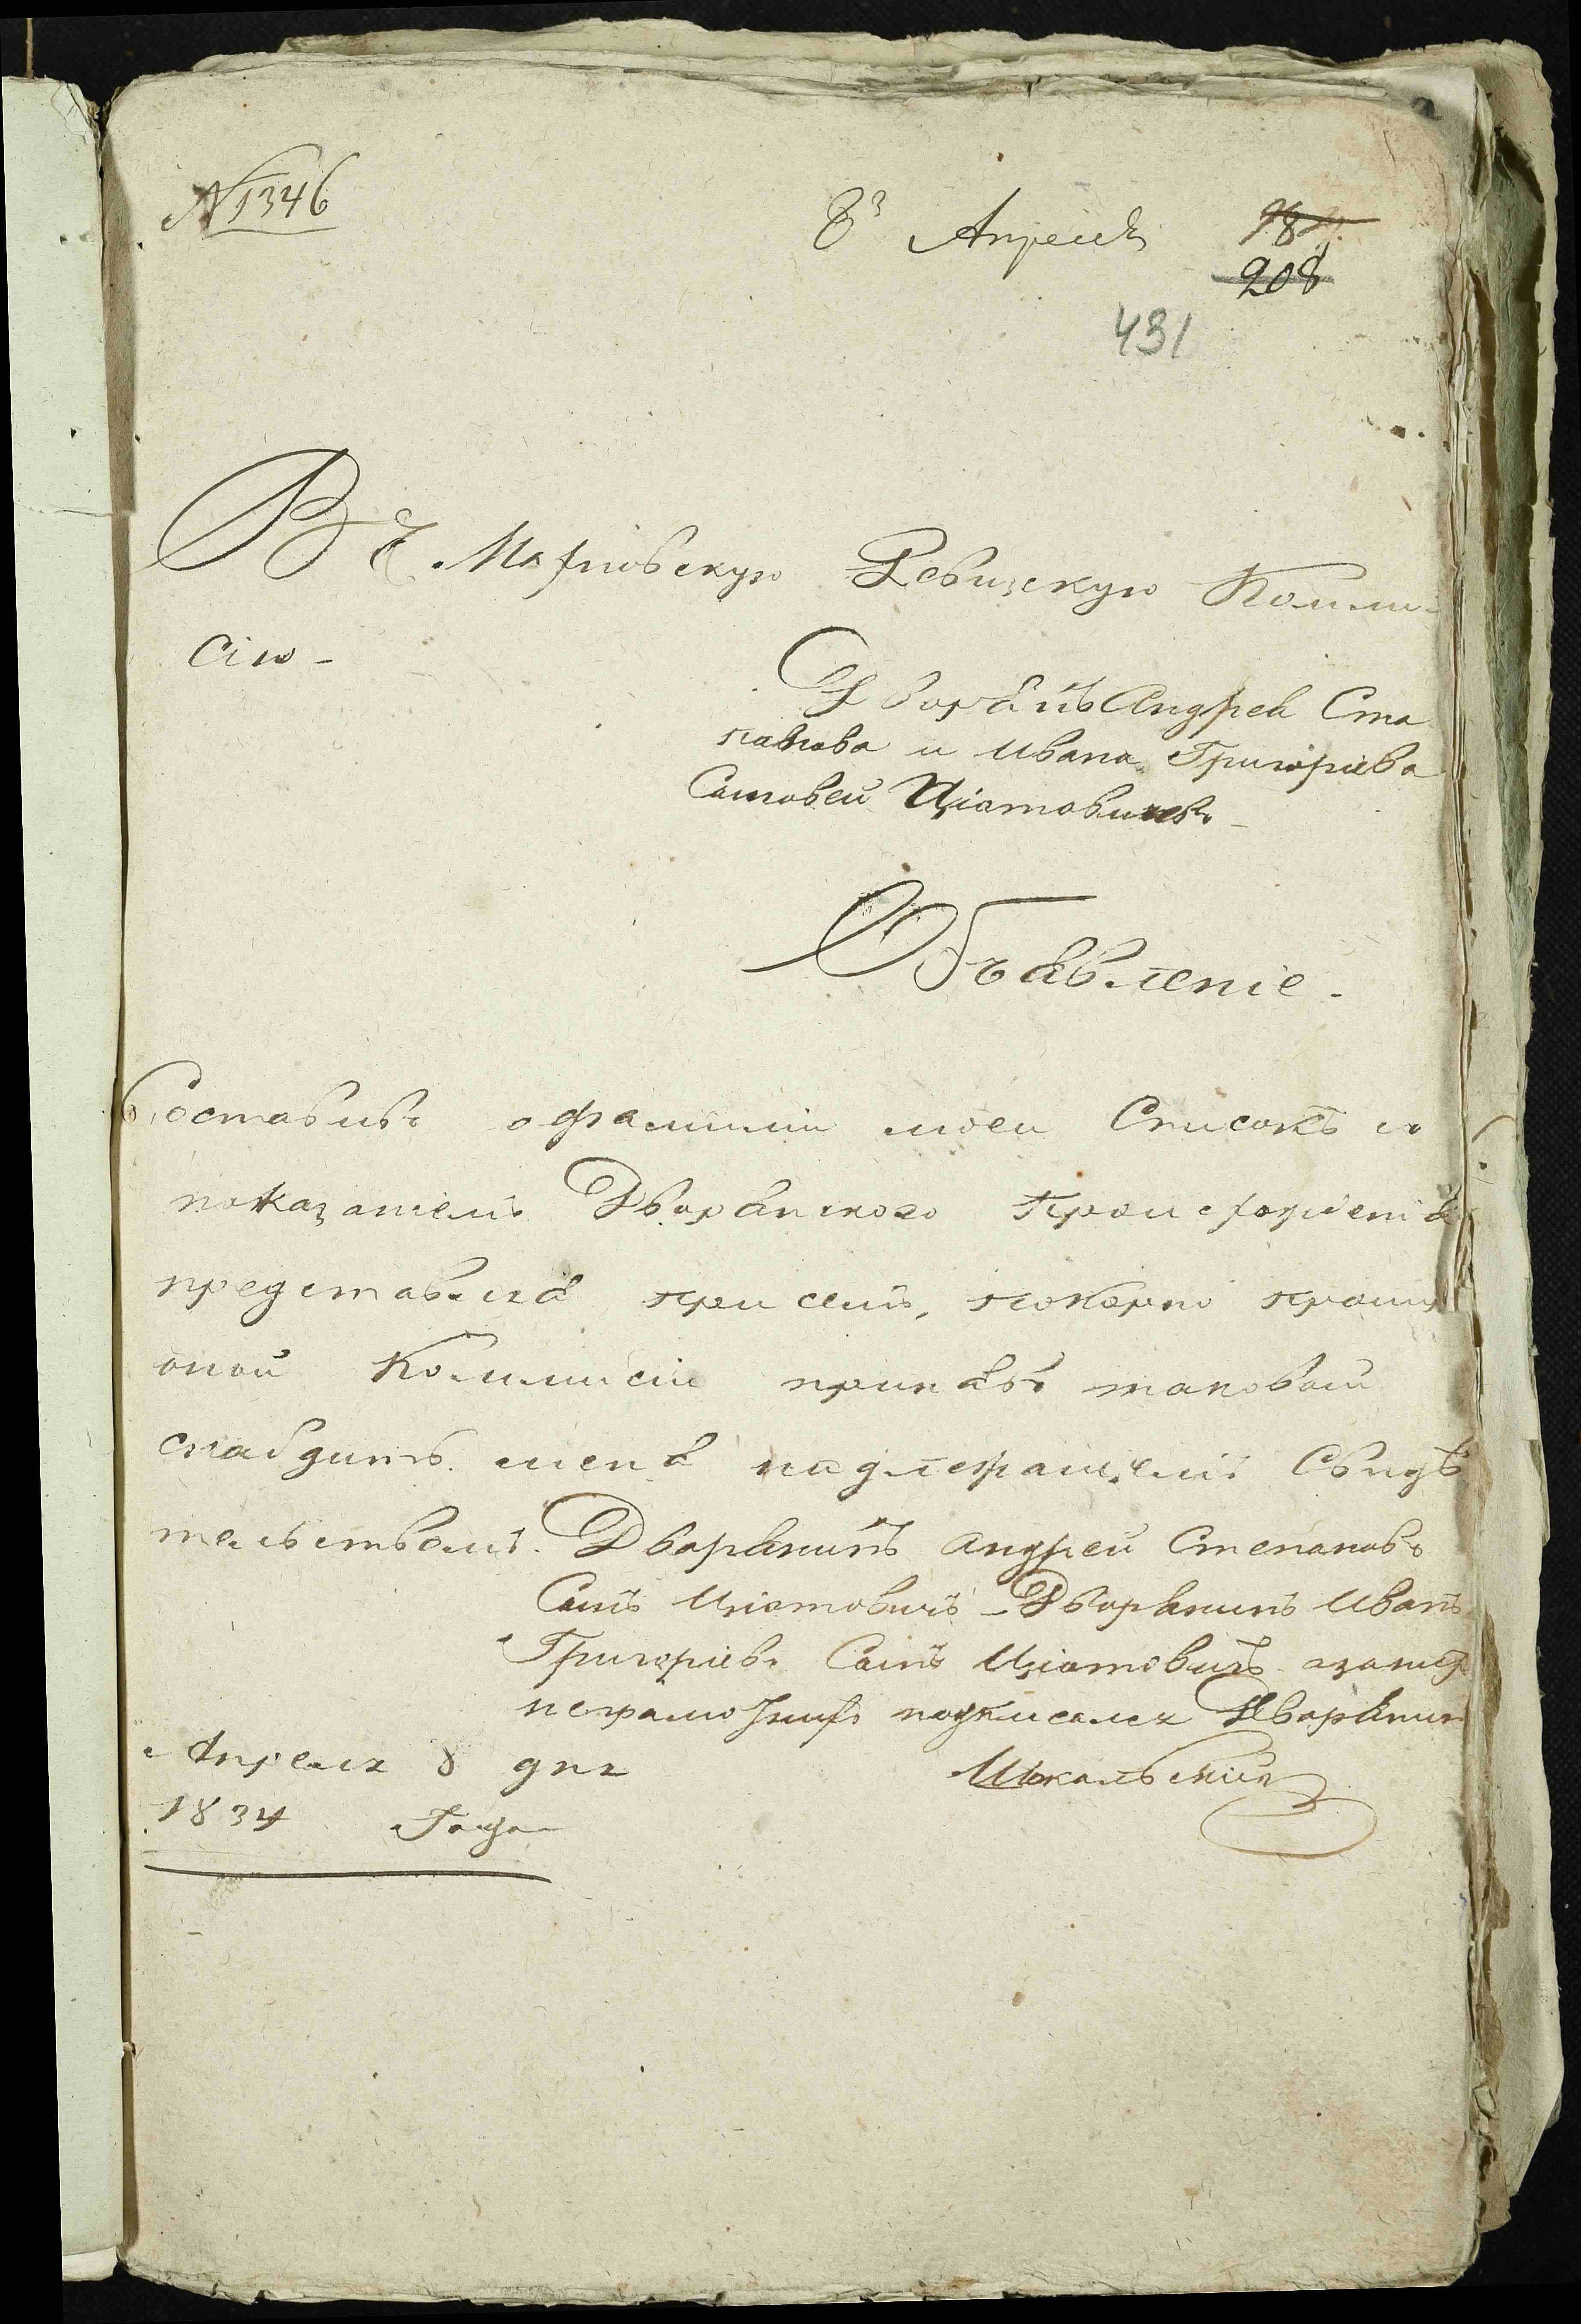 № 1346
8 Апреля
787
208
431
Въ Марковскую Ревизскую Комми-
сію -
Дворянъ Андрея Сте
панова и Ивана Григоріева
Сыновей Ціотовичевъ -
Объявленіе.
Составивъ о фамиліи моей Списокъ и
показаніемъ Дворянского происхожденія
представляя при семъ, покорно прошу
оной Коммисіи принявъ таковой
снабдить меня надлежащимъ Свидѣ
тельствомъ. Дворянинъ Андрей Степановъ
Сынъ Ціотовичъ - Дворянинъ Иванъ
Григоріевъ Сынъ Ціотовичъ а за ихъ
неграмотныхъ подписался Дворянин
Апреля 8 дня
1834 Года